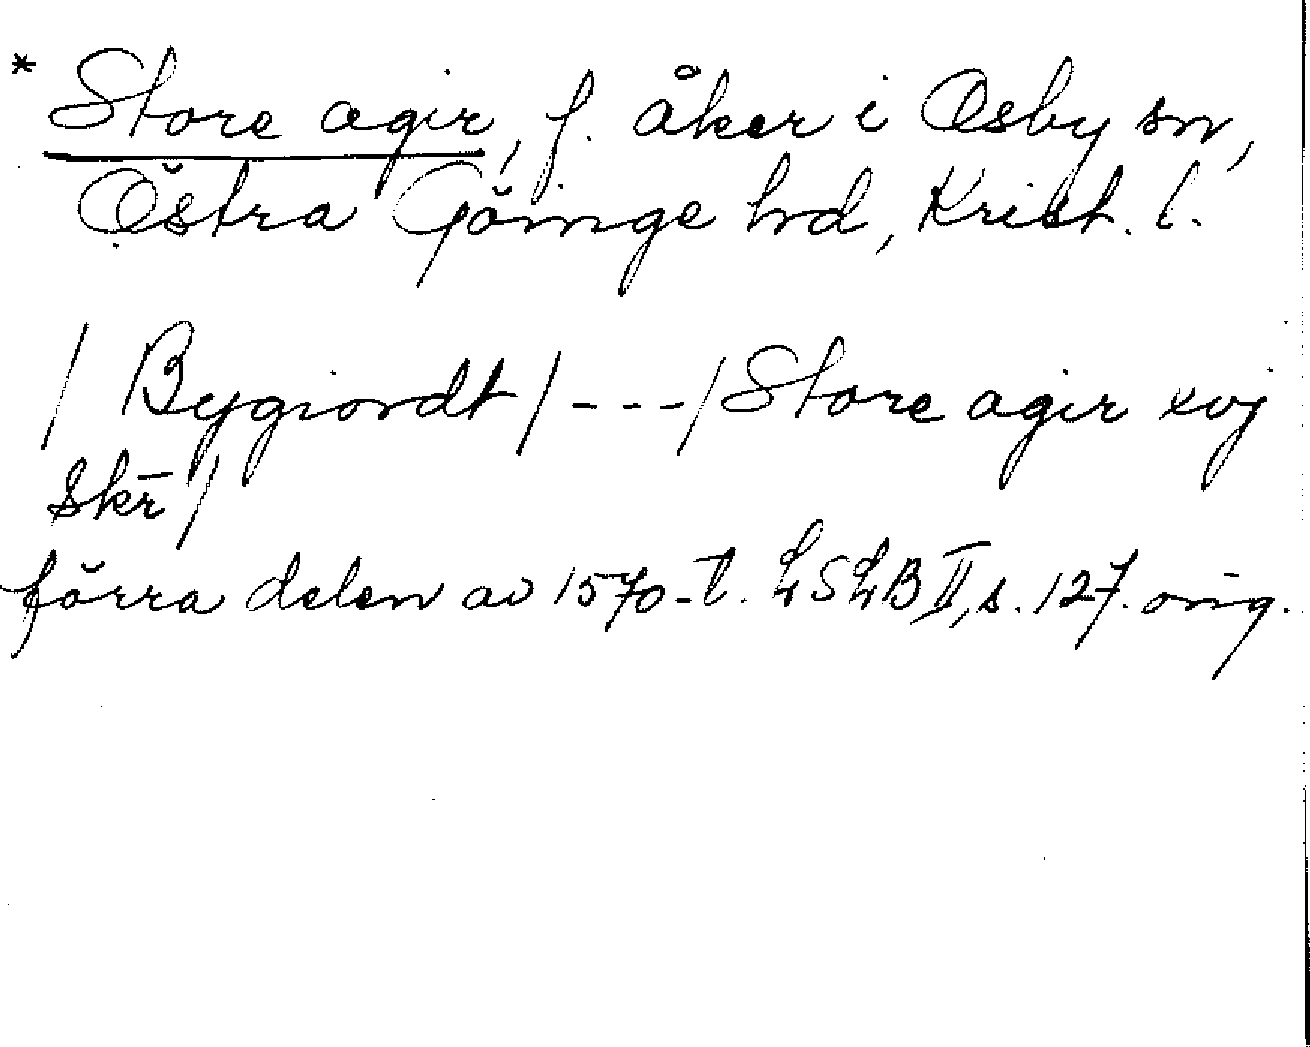 * Store agir, f. åker i Osby sn,
Östra Göinge hd, Krist. l.
/ Bygiordt / - - - / Store agir xvj
skr̄ /
förra delen av 1570-t. LSLB II, s. 127. orig.